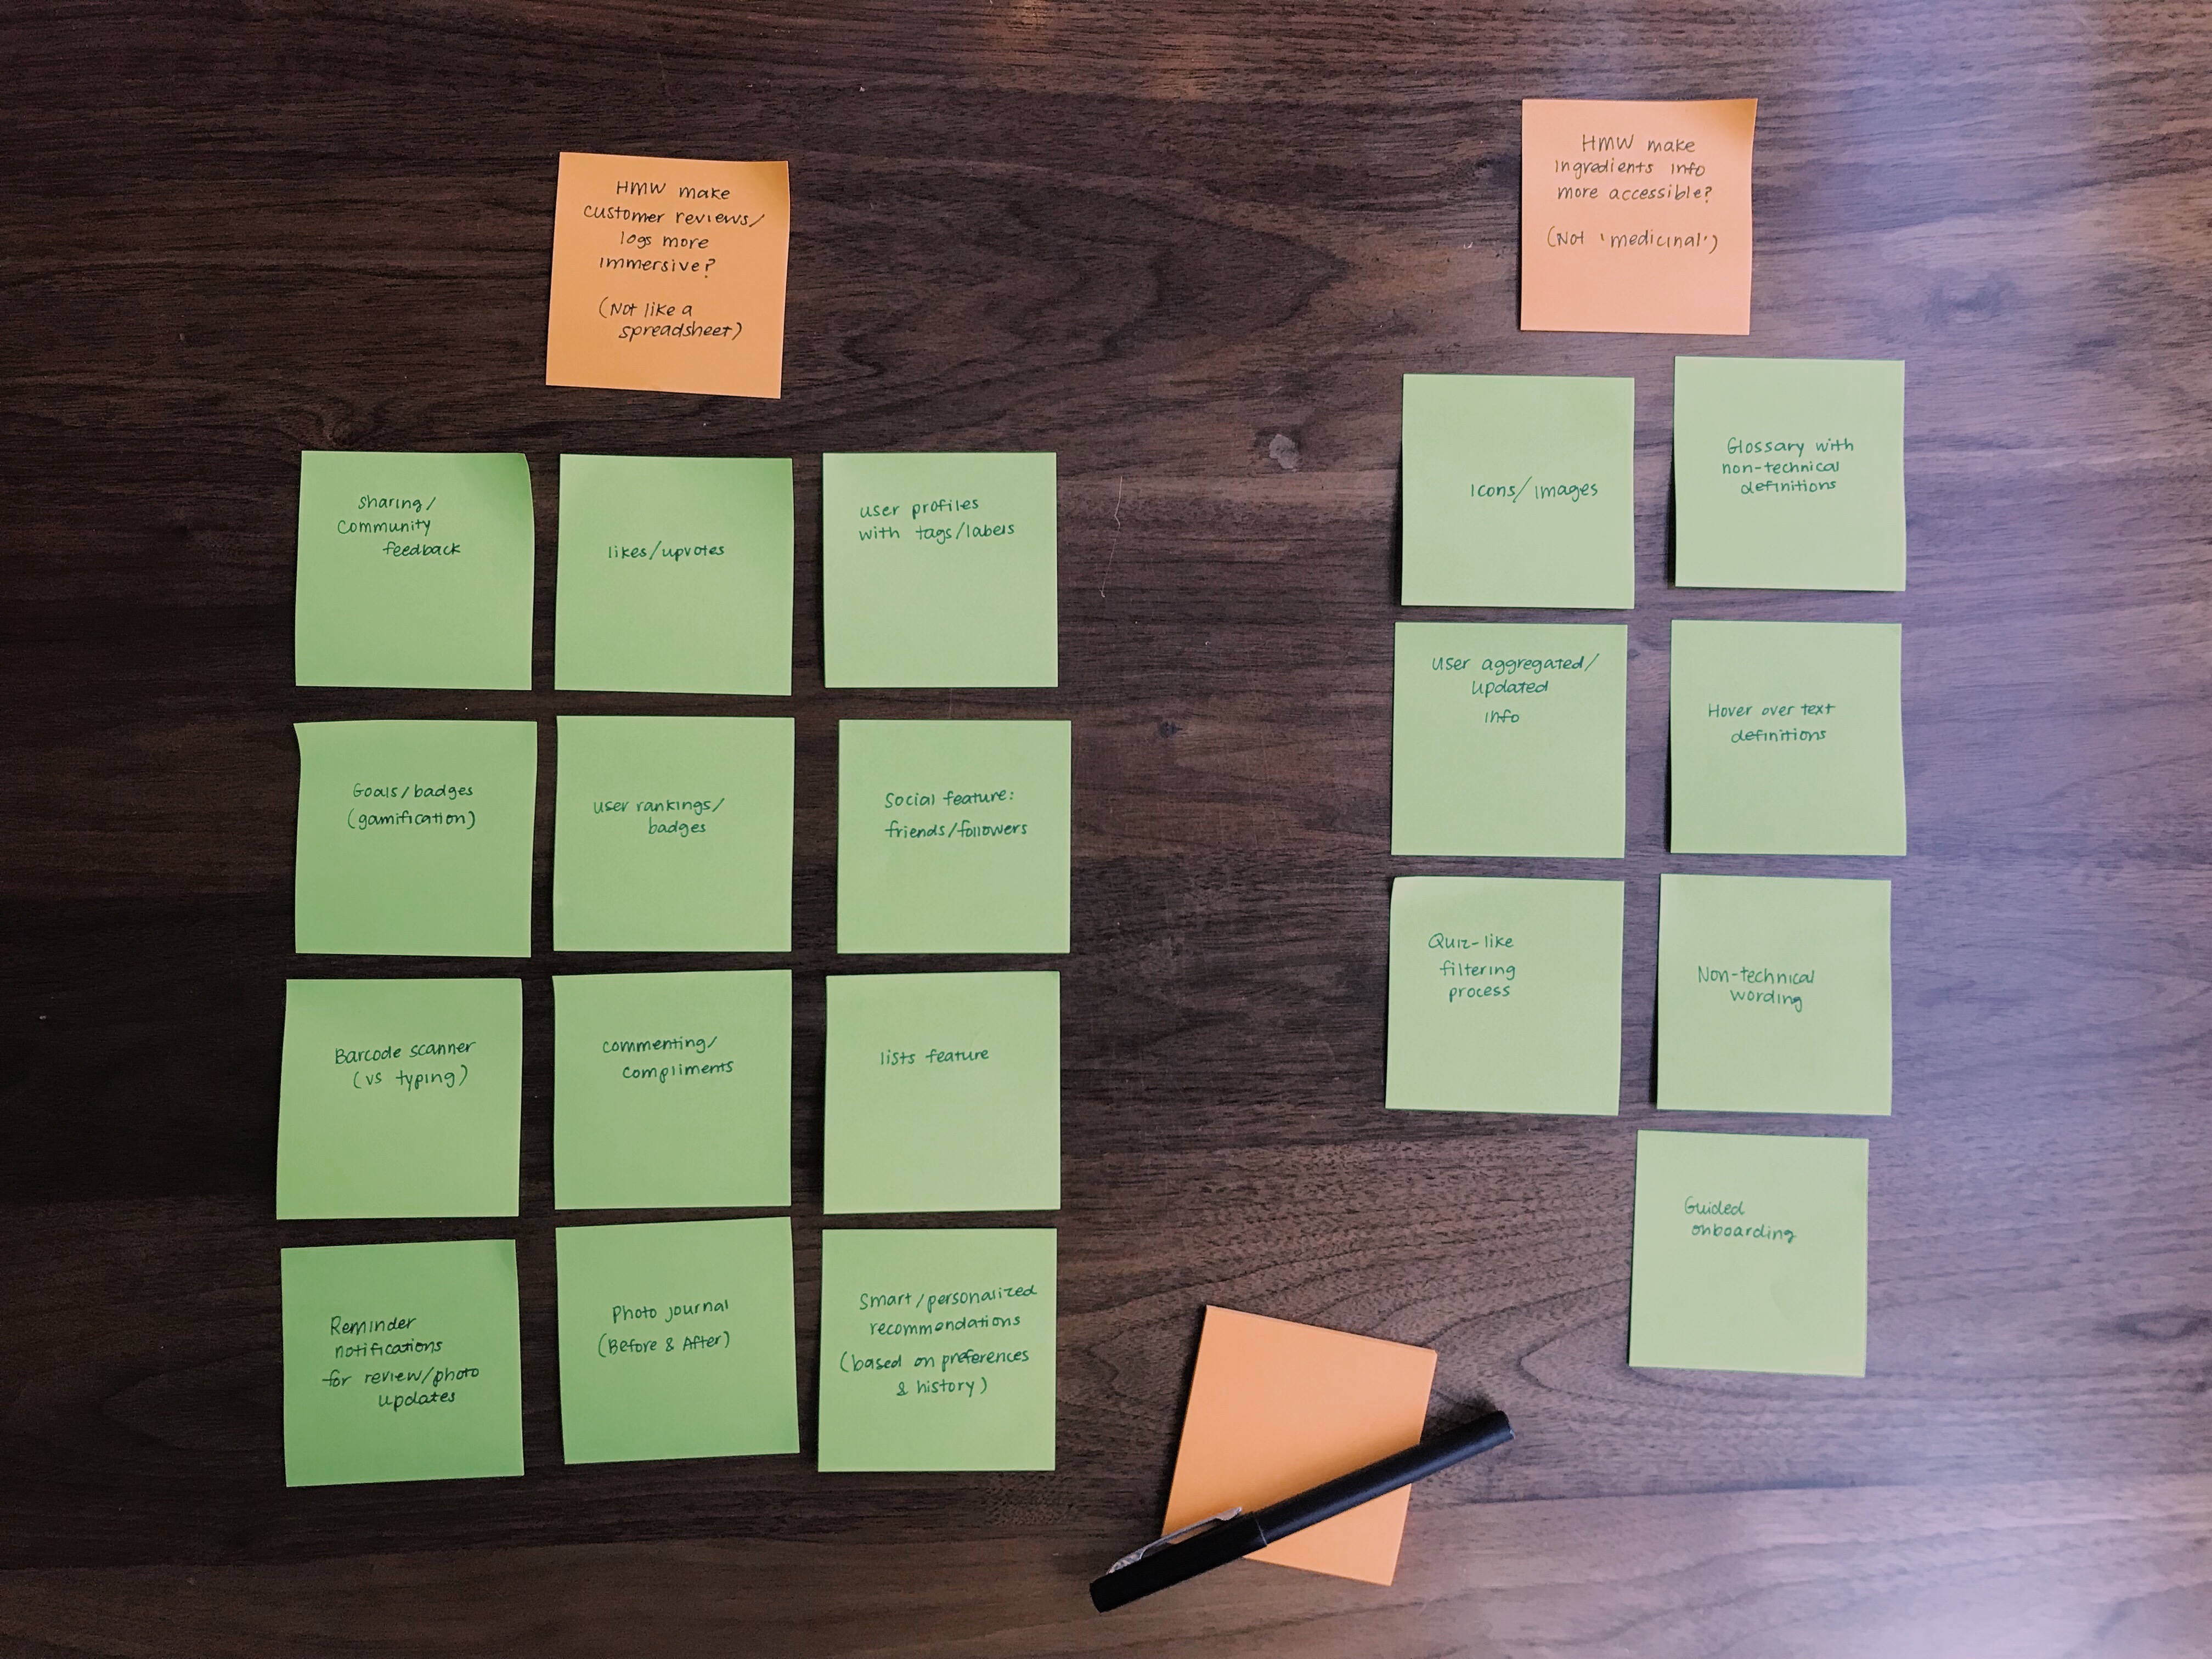 HMW make
customer reviews/
logs more
immersive?
(Not like a
spreadsheet)
Sharing/
Community
feedback
likes/upvotes
user profiles
with tags/labels
Goals/badges
(gamification)
user rankings/
badges
Social feature:
friends/followers
Barcode scanner
(vs typing)
commenting/
compliments
lists feature
Reminder
notifications
for review/photo
updates
Photo journal
(Before & After)
Smart/personalized
recommendations
(based on preferences
& history)
HMW make
ingredients info
more accessible?
(Not 'medicinal')
Icons/images
Glossary with
non-technical
definitions
User aggregated/
updated
info
Hover over text
definitions
Quiz-like
filtering
process
Non-technical
wording
Guided
onboarding